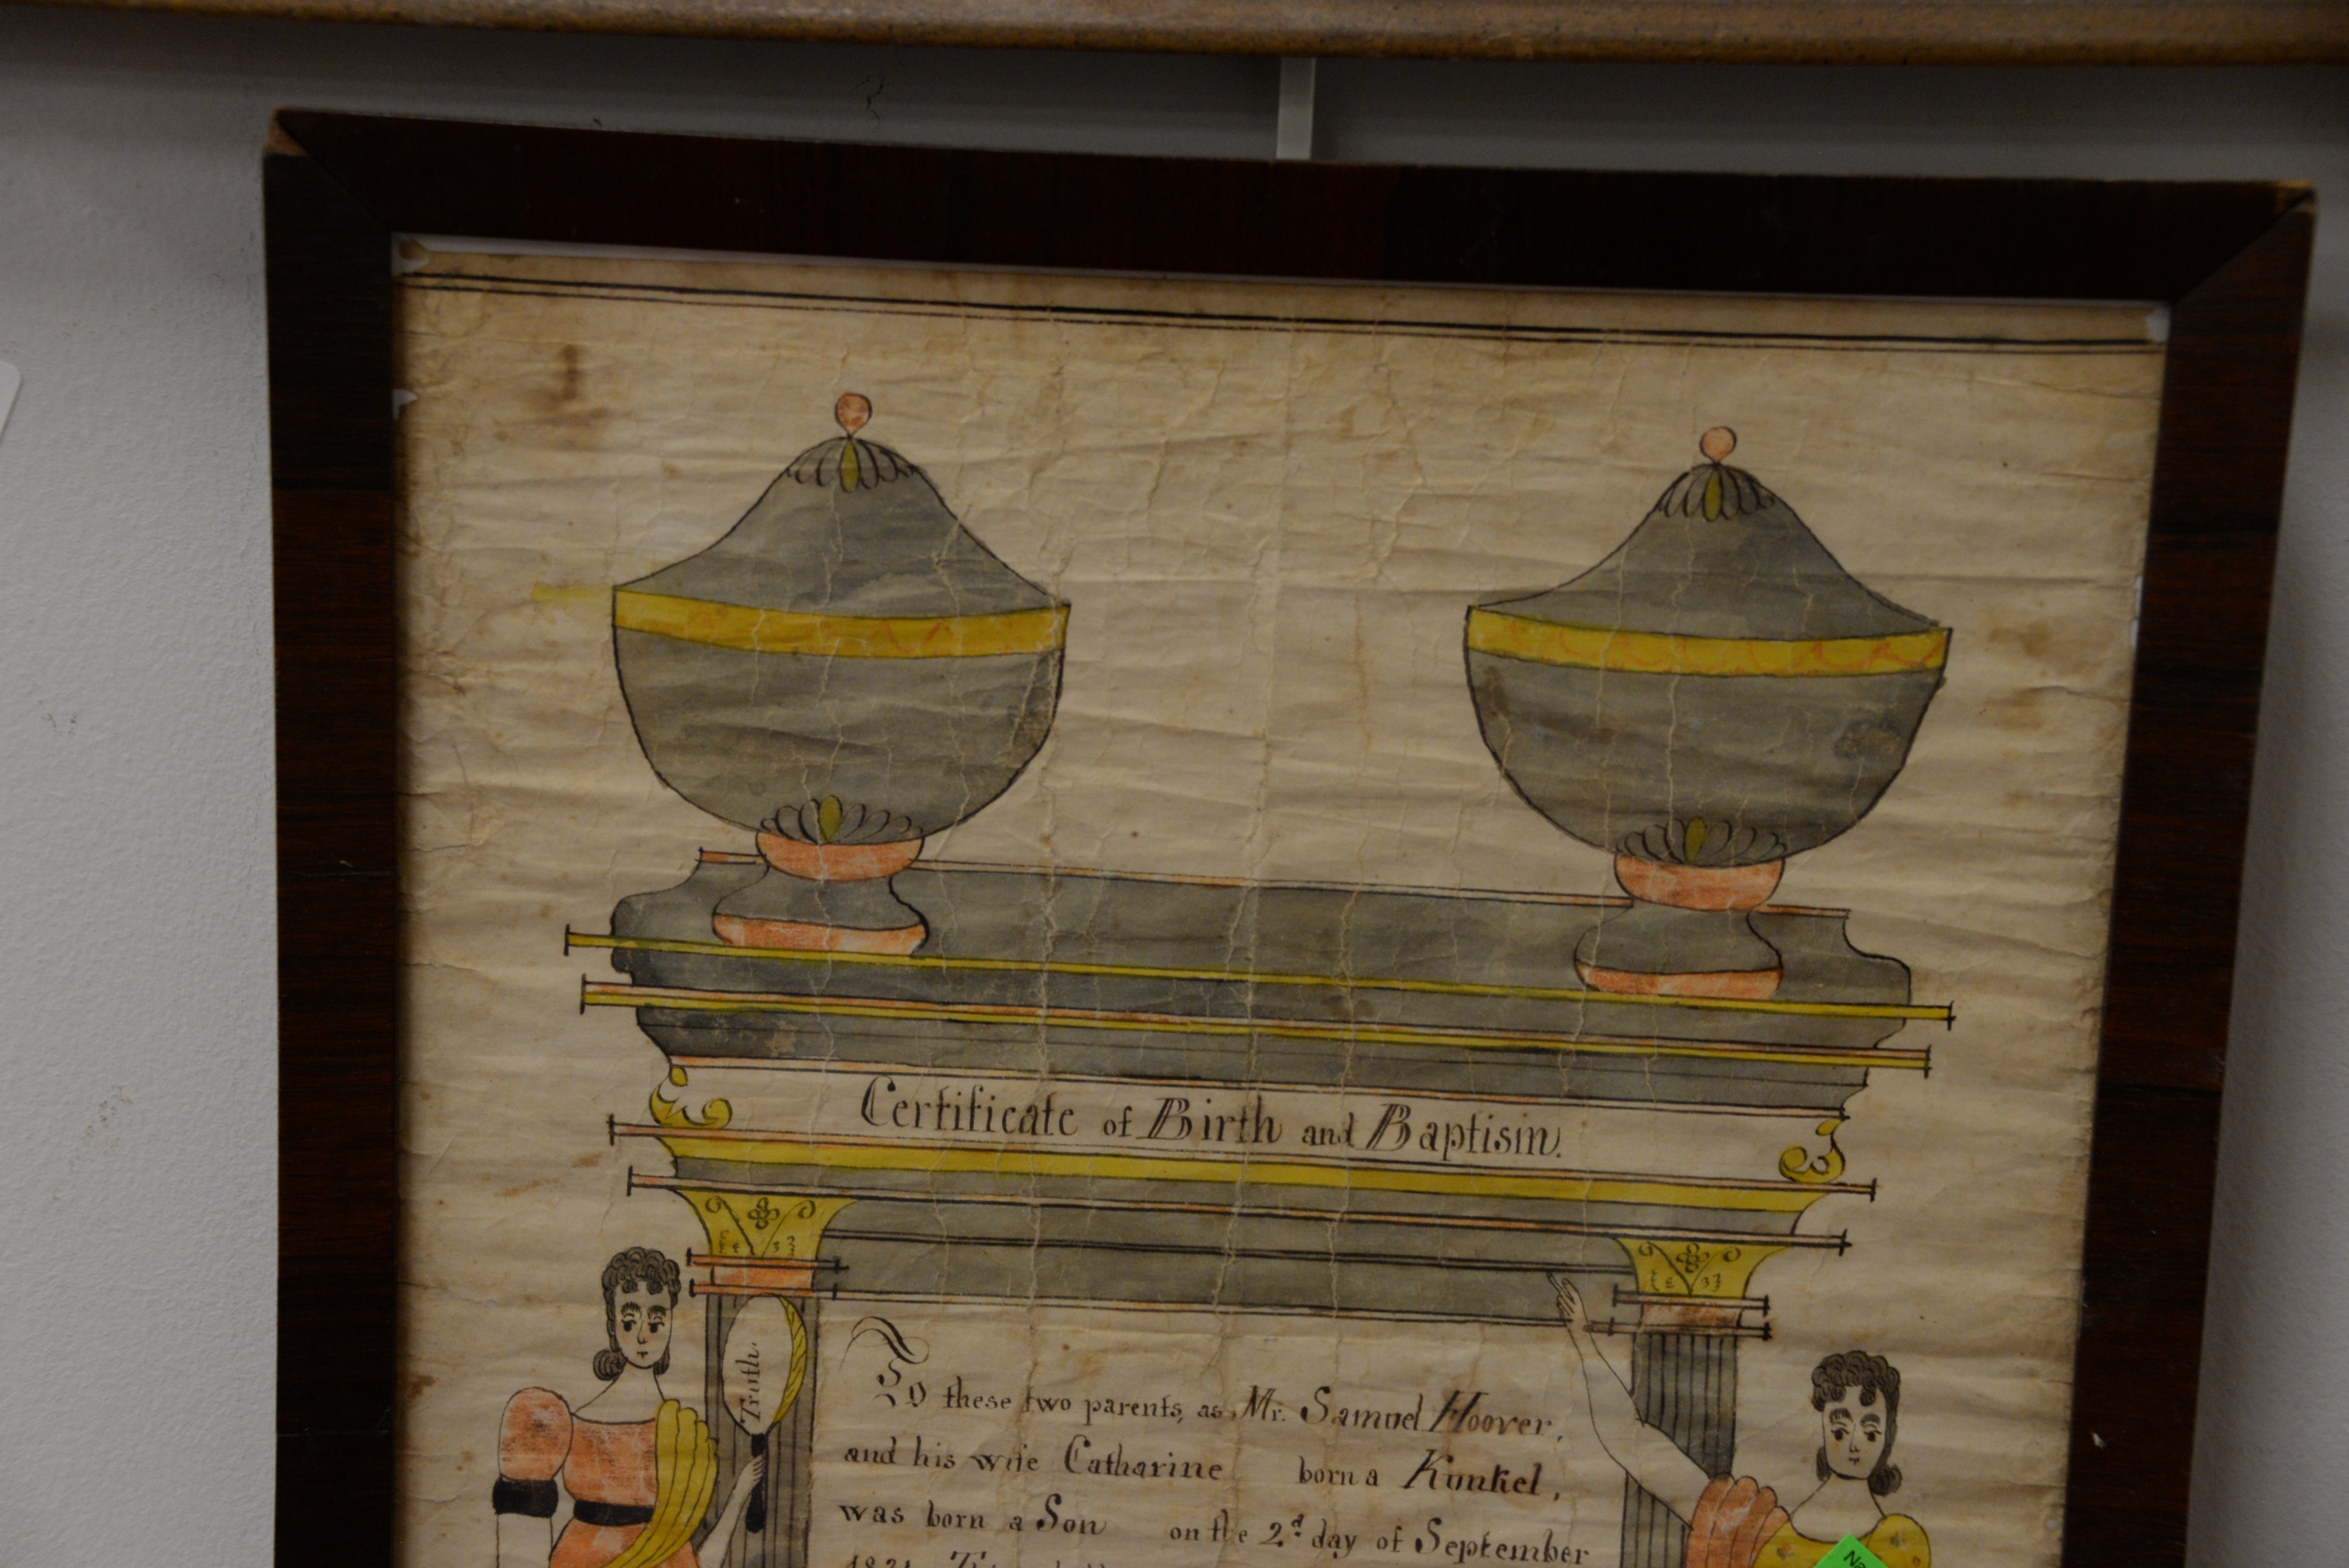 Certificate of Birth and Baptism.
Truth.
To these two parents, as Mr. Samuel Hoover,
and his wife Catharine born a Kunkel,
was born a Son on the 2d. day of September